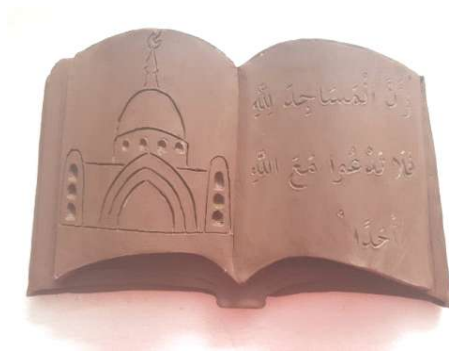 وَأَنَّ الْمَسَاجِدَ لِلَّهِ
فَلَا تَدْعُوا مَعَ اللَّهِ
أَحَدًا